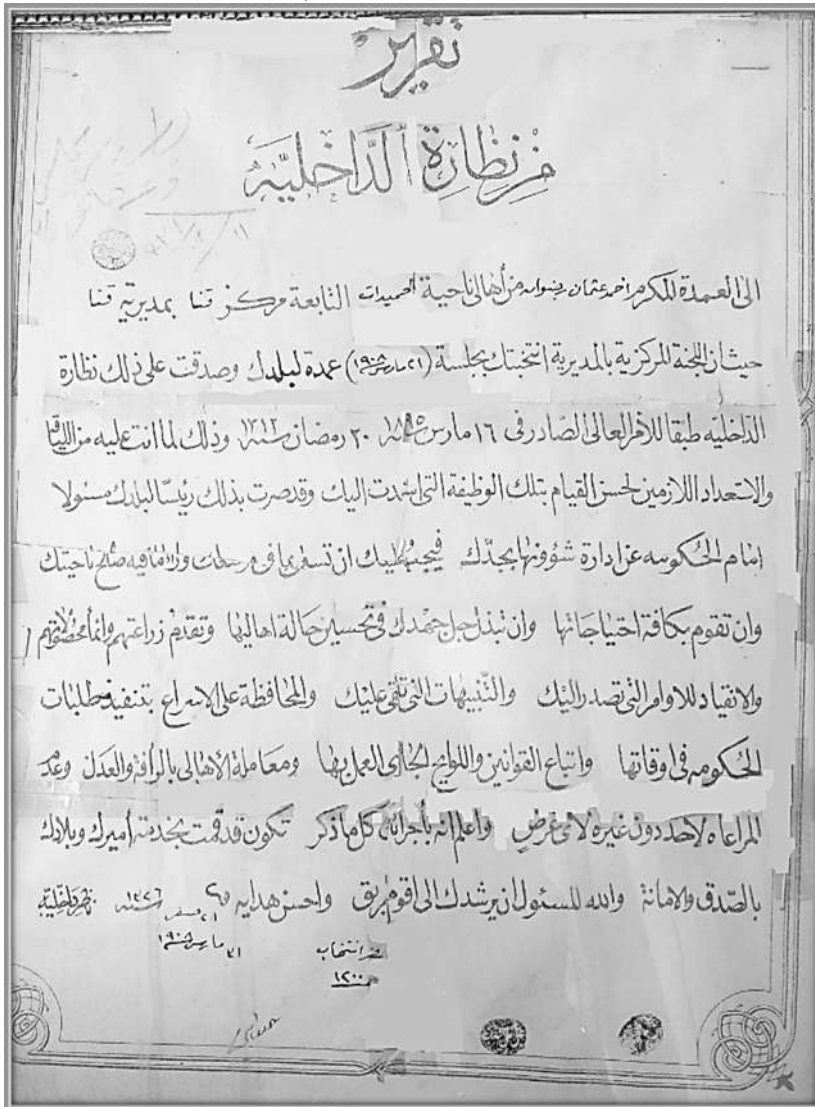 تقرير
من نظارة الداخلية
الى العمدة المكرم احمد عثمان رضوان من أهالى ناحية الحميدات التابعة مركز قنا بمديرية قنا
حيث ان اللجنة المركزية بالمديرية انتخبتك بجلسة (٢١ مارس سنة ١٩٠٨) عمدة لبلدك وصدقت على ذلك نظارة
الداخليه طبقا للأمر العالى الصادر فى ١٦ مارس سنة ١٨٩٥ ٢٠ رمضان سنة ١٣١٢ وذلك لما انت عليه من اللياقة
والاستعداد اللازمين لحسن القيام بتلك الوظيفة التى اسندت اليك وقد صرت بذلك رئيسا لبلدك مسئولا
امام الحكومه عن ادارة شؤونها بجدك فيجب عليك ان تسعى بما فى وسعك لما فيه صلاح ناحيتك
وان تقوم بكافة احتياجاتها وان تبذل جل جهدك فى تحسين حالة اهاليها وتقدم زراعتهم وانماء محصولاتهم
والانقياد للاوامر التى تصدر اليك والتنبيهات التى تلقى عليك والمحافظة على الاسراع بتنفيذ طلبات
الحكومه فى اوقاتها واتباع القوانين واللوايح الجارى العمل بها ومعاملة الأهالى بالرأفة والعدل وعدم
المراعاه لاحد دون غيره لاى غرض واعلم انه بأجرائك كل ما ذكر تكون قد قمت بخدمة أميرك وبلادك
بالصدق والامانة والله المسئول ان يرشدك الى اقوم طريق واحسن هدايه ٢١ صفر سنة ١٣٢٦ ناظر داخلية
٢١ مارس سنة ١٩٠٨
نمرة انتخاب
١٢٠٠